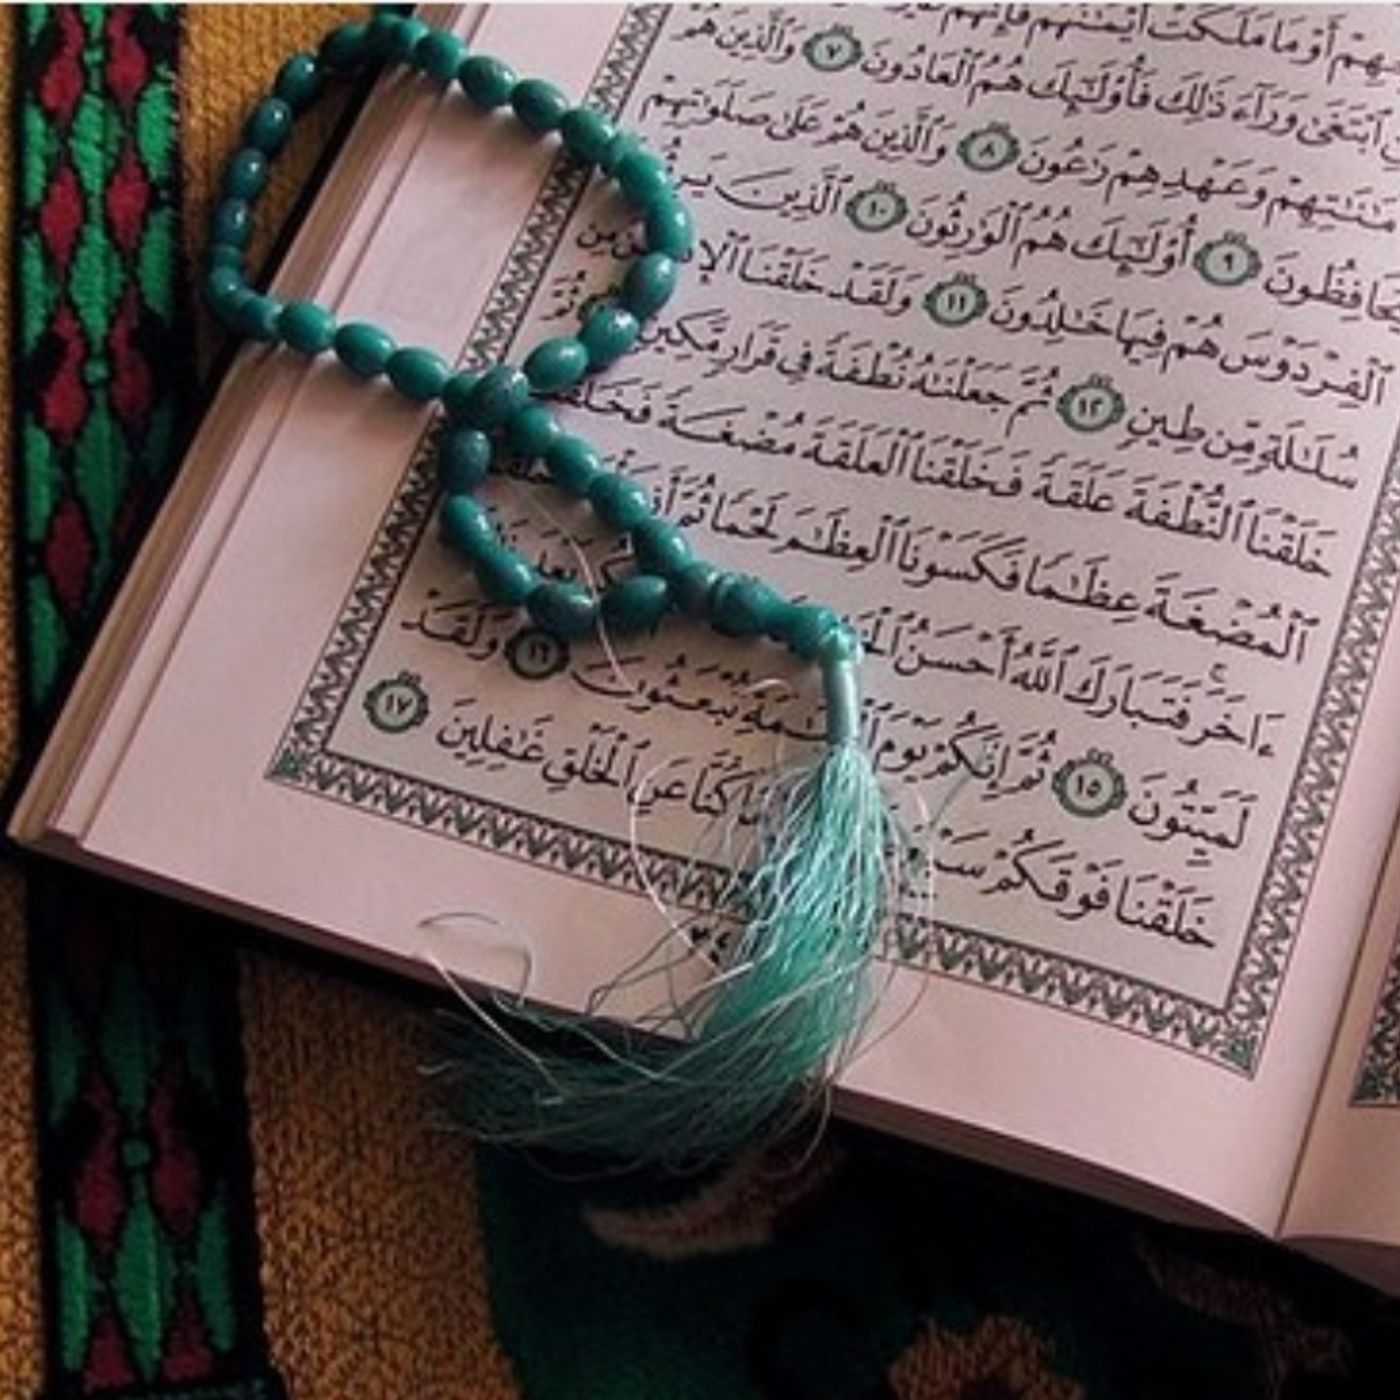 أَوْ مَا مَلَكَتْ أَيْمَٰنُهُمْ فَإِنَّهُمْ
ٱبْتَغَىٰ وَرَآءَ ذَٰلِكَ فَأُو۟لَٰٓئِكَ هُمُ ٱلْعَادُونَ ٧ وَٱلَّذِينَ هُمْ
وَعَهْدِهِمْ رَٰعُونَ ٨ وَٱلَّذِينَ هُمْ عَلَىٰ صَلَوَٰتِهِمْ
يُحَافِظُونَ ٩ أُو۟لَٰٓئِكَ هُمُ ٱلْوَٰرِثُونَ ١٠ ٱلَّذِينَ
ٱلْفِرْدَوْسَ هُمْ فِيهَا خَٰلِدُونَ ١١ وَلَقَدْ خَلَقْنَا مِن
سُلَٰلَةٍ مِّن طِينٍ ١٢ ثُمَّ جَعَلْنَٰهُ نُطْفَةً فِى قَرَارٍ مَّكِينٍ ثُمَّ
خَلَقْنَا ٱلنُّطْفَةَ عَلَقَةً فَخَلَقْنَا ٱلْعَلَقَةَ مُضْغَةً
ٱلْمُضْغَةَ عِظَٰمًا فَكَسَوْنَا ٱلْعِظَٰمَ لَحْمًا ثُمَّ
ءَاخَرَ فَتَبَارَكَ ٱللَّهُ أَحْسَنُ
لَمَيِّتُونَ ١٥ ثُمَّ إِنَّكُمْ يَوْمَ تُبْعَثُونَ ١٦ وَلَقَدْ
خَلَقْنَا فَوْقَكُمْ كُنَّا عَنِ ٱلْخَلْقِ غَٰفِلِينَ ١٧